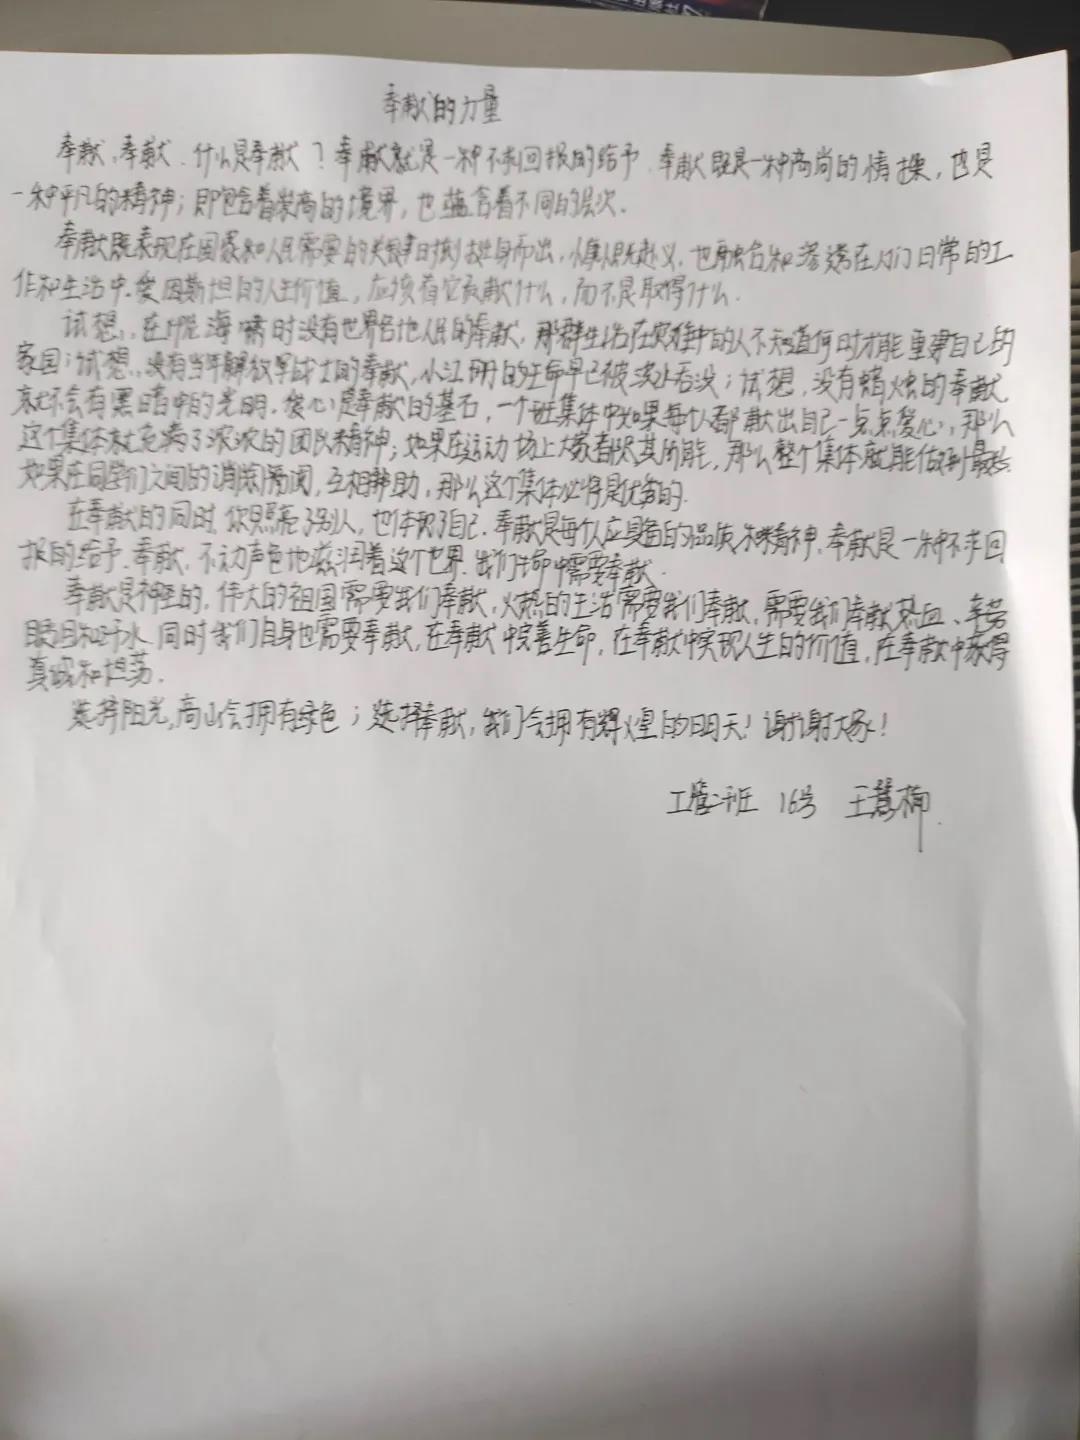 奉献的力量
奉献,奉献.什么是奉献?奉献就是一种不求回报的给予.奉献既是一种高尚的情操,也是
一种平凡的精神;即包含着崇高的境界,也蕴含着不同的层次.
奉献既表现在国家和人民需要的关键时刻挺身而出,慷慨赴义.也融合和渗透在人们日常的工
作和生活中.爱因斯坦的人生价值,应该看它贡献什么,而不是取得什么.
试想,在印尼海啸时没有世界各地人民的奉献,那群生活在灾难中的人不知道何时才能重建自己的
家园;试想,没有当年解放军战士的奉献,小江珊的生命早已被洪水吞没;试想,没有蜡烛的奉献
就不会有黑暗中的光明.爱心是奉献的基石,一个班集体中如果每个人都献出自己一点点爱心,那么
这个集体就充满了浓浓的团队精神;如果在运动场上大家都尽其所能,那么整个集体就能做到最好.
如果在同学们之间的消除隔阂,互相帮助,那么这个集体必将是优秀的.
在奉献的同时,你照亮了别人,也体现了自己.奉献是每个人应具备的品质和精神,奉献是一种不求回
报的给予.奉献,不动声色地滋润着这个世界.我们生命中需要奉献.
奉献是神圣的,伟大的祖国需要我们奉献,火热的生活需要我们奉献,需要我们奉献热血、辛劳
和汗水.同时我们自身也需要奉献,在奉献中完善生命,在奉献中实现人生的价值,在奉献中获得
真诚和坦荡.
选择阳光,高山会拥有绿色;选择奉献,我们会拥有辉煌的明天!谢谢大家!
班 16号 王慧楠